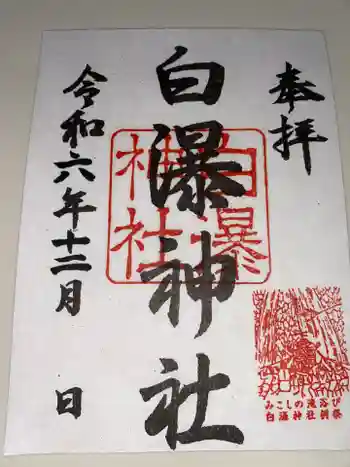 奉拝
白瀑神社
令和六年十二月 日
白瀑神社
みこしの滝浴び
白瀑神社例祭